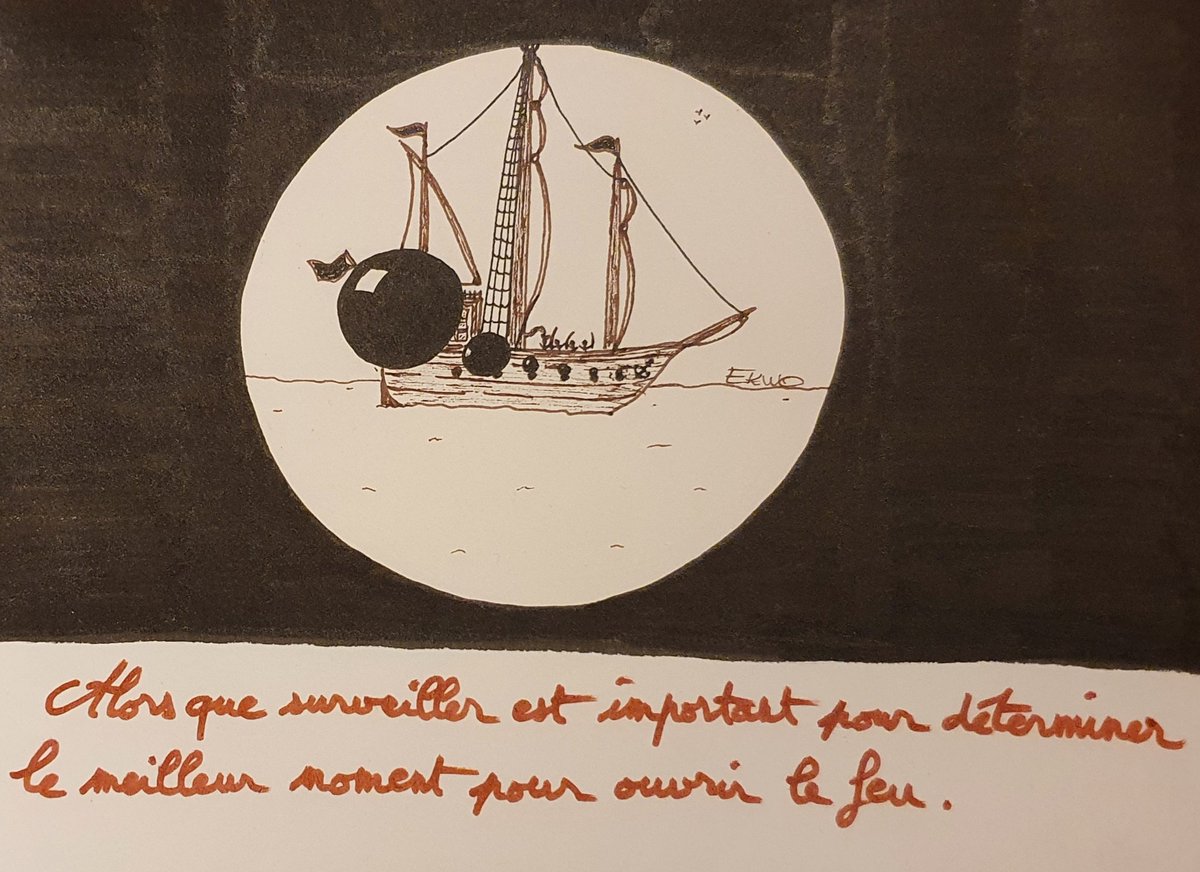 EKWO
Alors que surveiller est important pour déterminer
le meilleur moment pour ouvrir le feu.